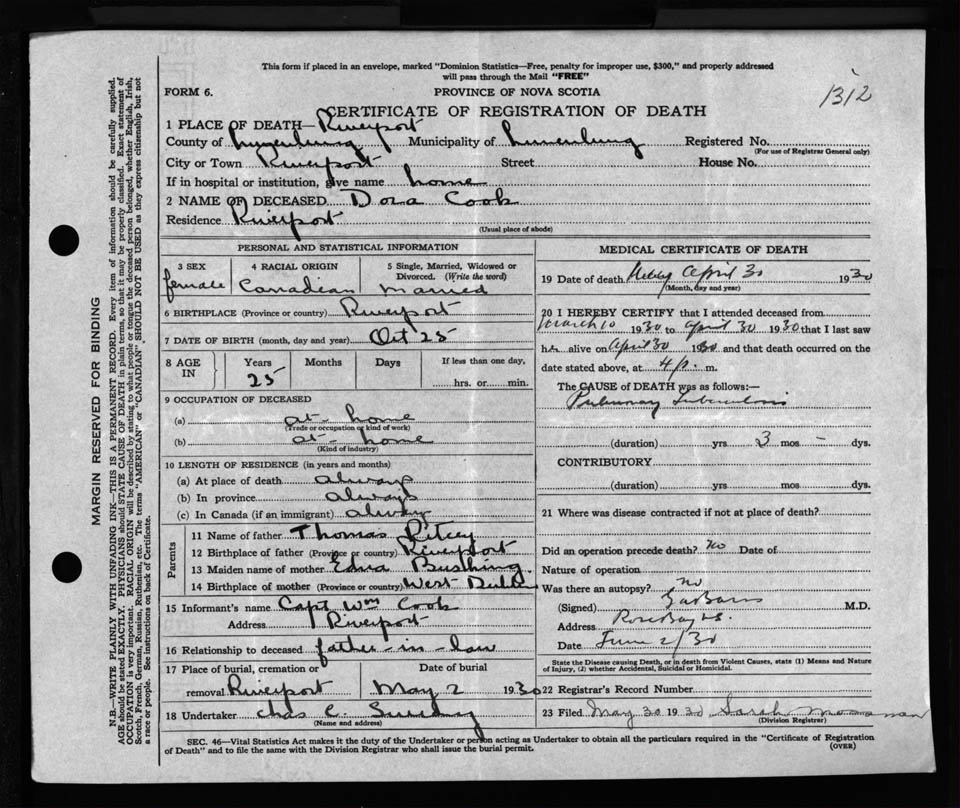 This form if placed in an envelope, marked "Dominion Statistics—Free, penalty for improper use, $300," and properly addressed
will pass through the Mail "FREE"
FORM 6.
PROVINCE OF NOVA SCOTIA
1312
CERTIFICATE OF REGISTRATION OF DEATH
1 PLACE OF DEATH— Riverport
County of Lunenburg Municipality of Lunenburg Registered No.
(For use of Registrar General only)
City or Town Riverport Street House No.
If in hospital or institution, give name home
2 NAME OF DECEASED Dora Cook
Residence Riverport
(Usual place of abode)
PERSONAL AND STATISTICAL INFORMATION
3 SEX 4 RACIAL ORIGIN 5 Single, Married, Widowed or
Divorced. (Write the word)
female Canadian Married
6 BIRTHPLACE (Province or country) Riverport
7 DATE OF BIRTH (month, day and year) Oct 25
8 AGE IN Years Months Days If less than one day,
25 hrs. or min.
9 OCCUPATION OF DECEASED
(a) at-home
(Trade or occupation or kind of work)
(b) at-home
(Kind of industry)
10 LENGTH OF RESIDENCE (in years and months)
(a) At place of death always
(b) In province always
(c) In Canada (if an immigrant) always
Parents
11 Name of father Thomas Ritcey
12 Birthplace of father (Province or country) Riverport
13 Maiden name of mother Edna Bushing
14 Birthplace of mother (Province or country) West
15 Informant's name Capt Wm Cook
Address Riverport
16 Relationship to deceased father-in-law
17 Place of burial, cremation or Date of burial
removal Riverport May 2 1930
18 Undertaker Chas C.
(Name and address)
MEDICAL CERTIFICATE OF DEATH
19 Date of death April 30 1930
(Month, day and year)
20 I HEREBY CERTIFY that I attended deceased from
March 10 1930 to April 30 1930 that I last saw
h alive on April 30 1930 and that death occurred on the
date stated above, at 4 p. m.
The CAUSE OF DEATH was as follows:—
Pulmonary Tuberculosis
(duration) yrs 3 mos - dys.
CONTRIBUTORY
(duration) yrs. mos. dys.
21 Where was disease contracted if not at place of death?
Did an operation precede death? no Date of
Nature of operation
Was there an autopsy? no
(Signed) M.D.
Address Rose Bay N.S.
Date June 2/30
State the Disease causing Death, or in death from Violent Causes, state (1) Means and Nature
of Injury, (2) whether Accidental, Suicidal or Homicidal.
22 Registrar's Record Number
23 Filed May 30 1930 Sarah
(Division Registrar)
SEC. 46—Vital Statistics Act makes it the duty of the Undertaker or person acting as Undertaker to obtain all the particulars required in the "Certificate of Registration
of Death" and to file the same with the Division Registrar who shall issue the burial permit.
(OVER)
MARGIN RESERVED FOR BINDING
N.B.—WRITE PLAINLY WITH UNFADING INK—THIS IS A PERMANENT RECORD. Every item of information should be carefully supplied.
AGE should be stated EXACTLY. PHYSICIANS should STATE CAUSE OF DEATH in plain terms, so that it may be properly classified. Exact statement of
OCCUPATION is very important. RACIAL ORIGIN will be described by stating to what people or tongue the deceased person belonged, whether English, Irish,
Scotch, French, German, Russian, Ruthenian, etc. The terms "AMERICAN" or "CANADIAN" SHOULD NOT BE USED as they express citizenship but not
a race or people. See instructions on back of Certificate.